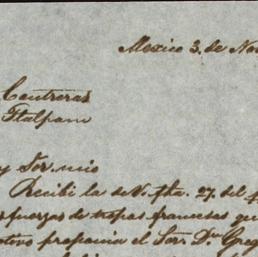 Mexico 3. de No
Contreras
Tlalpam
y Sor. mio
Recibi la de V. fha. 27. del
sfuerzos de tropas francesas que
otivo proponia el Sor. Dn. Greg